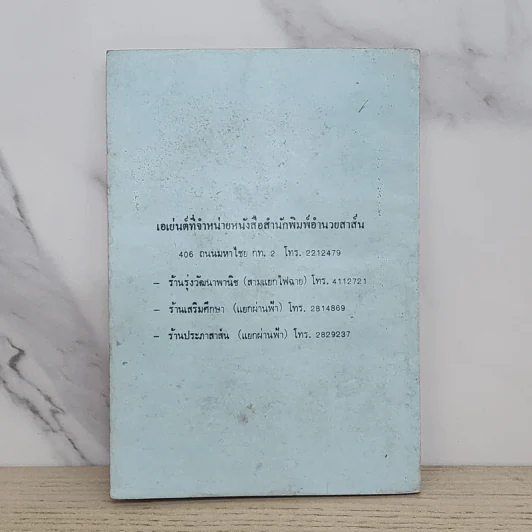 เอเย่นต์ที่จำหน่ายหนังสือสำนักพิมพ์อำนวยสาส์น
406 ถนนมหาไชย กท. 2 โทร. 2212479
- ร้านรุ่งวัฒนาพานิช (สามแยกไฟฉาย) โทร. 4112721
- ร้านเสริมศึกษา (แยกผ่านฟ้า) โทร. 2814869
- ร้านประภาสาส์น (แยกผ่านฟ้า) โทร. 2829237